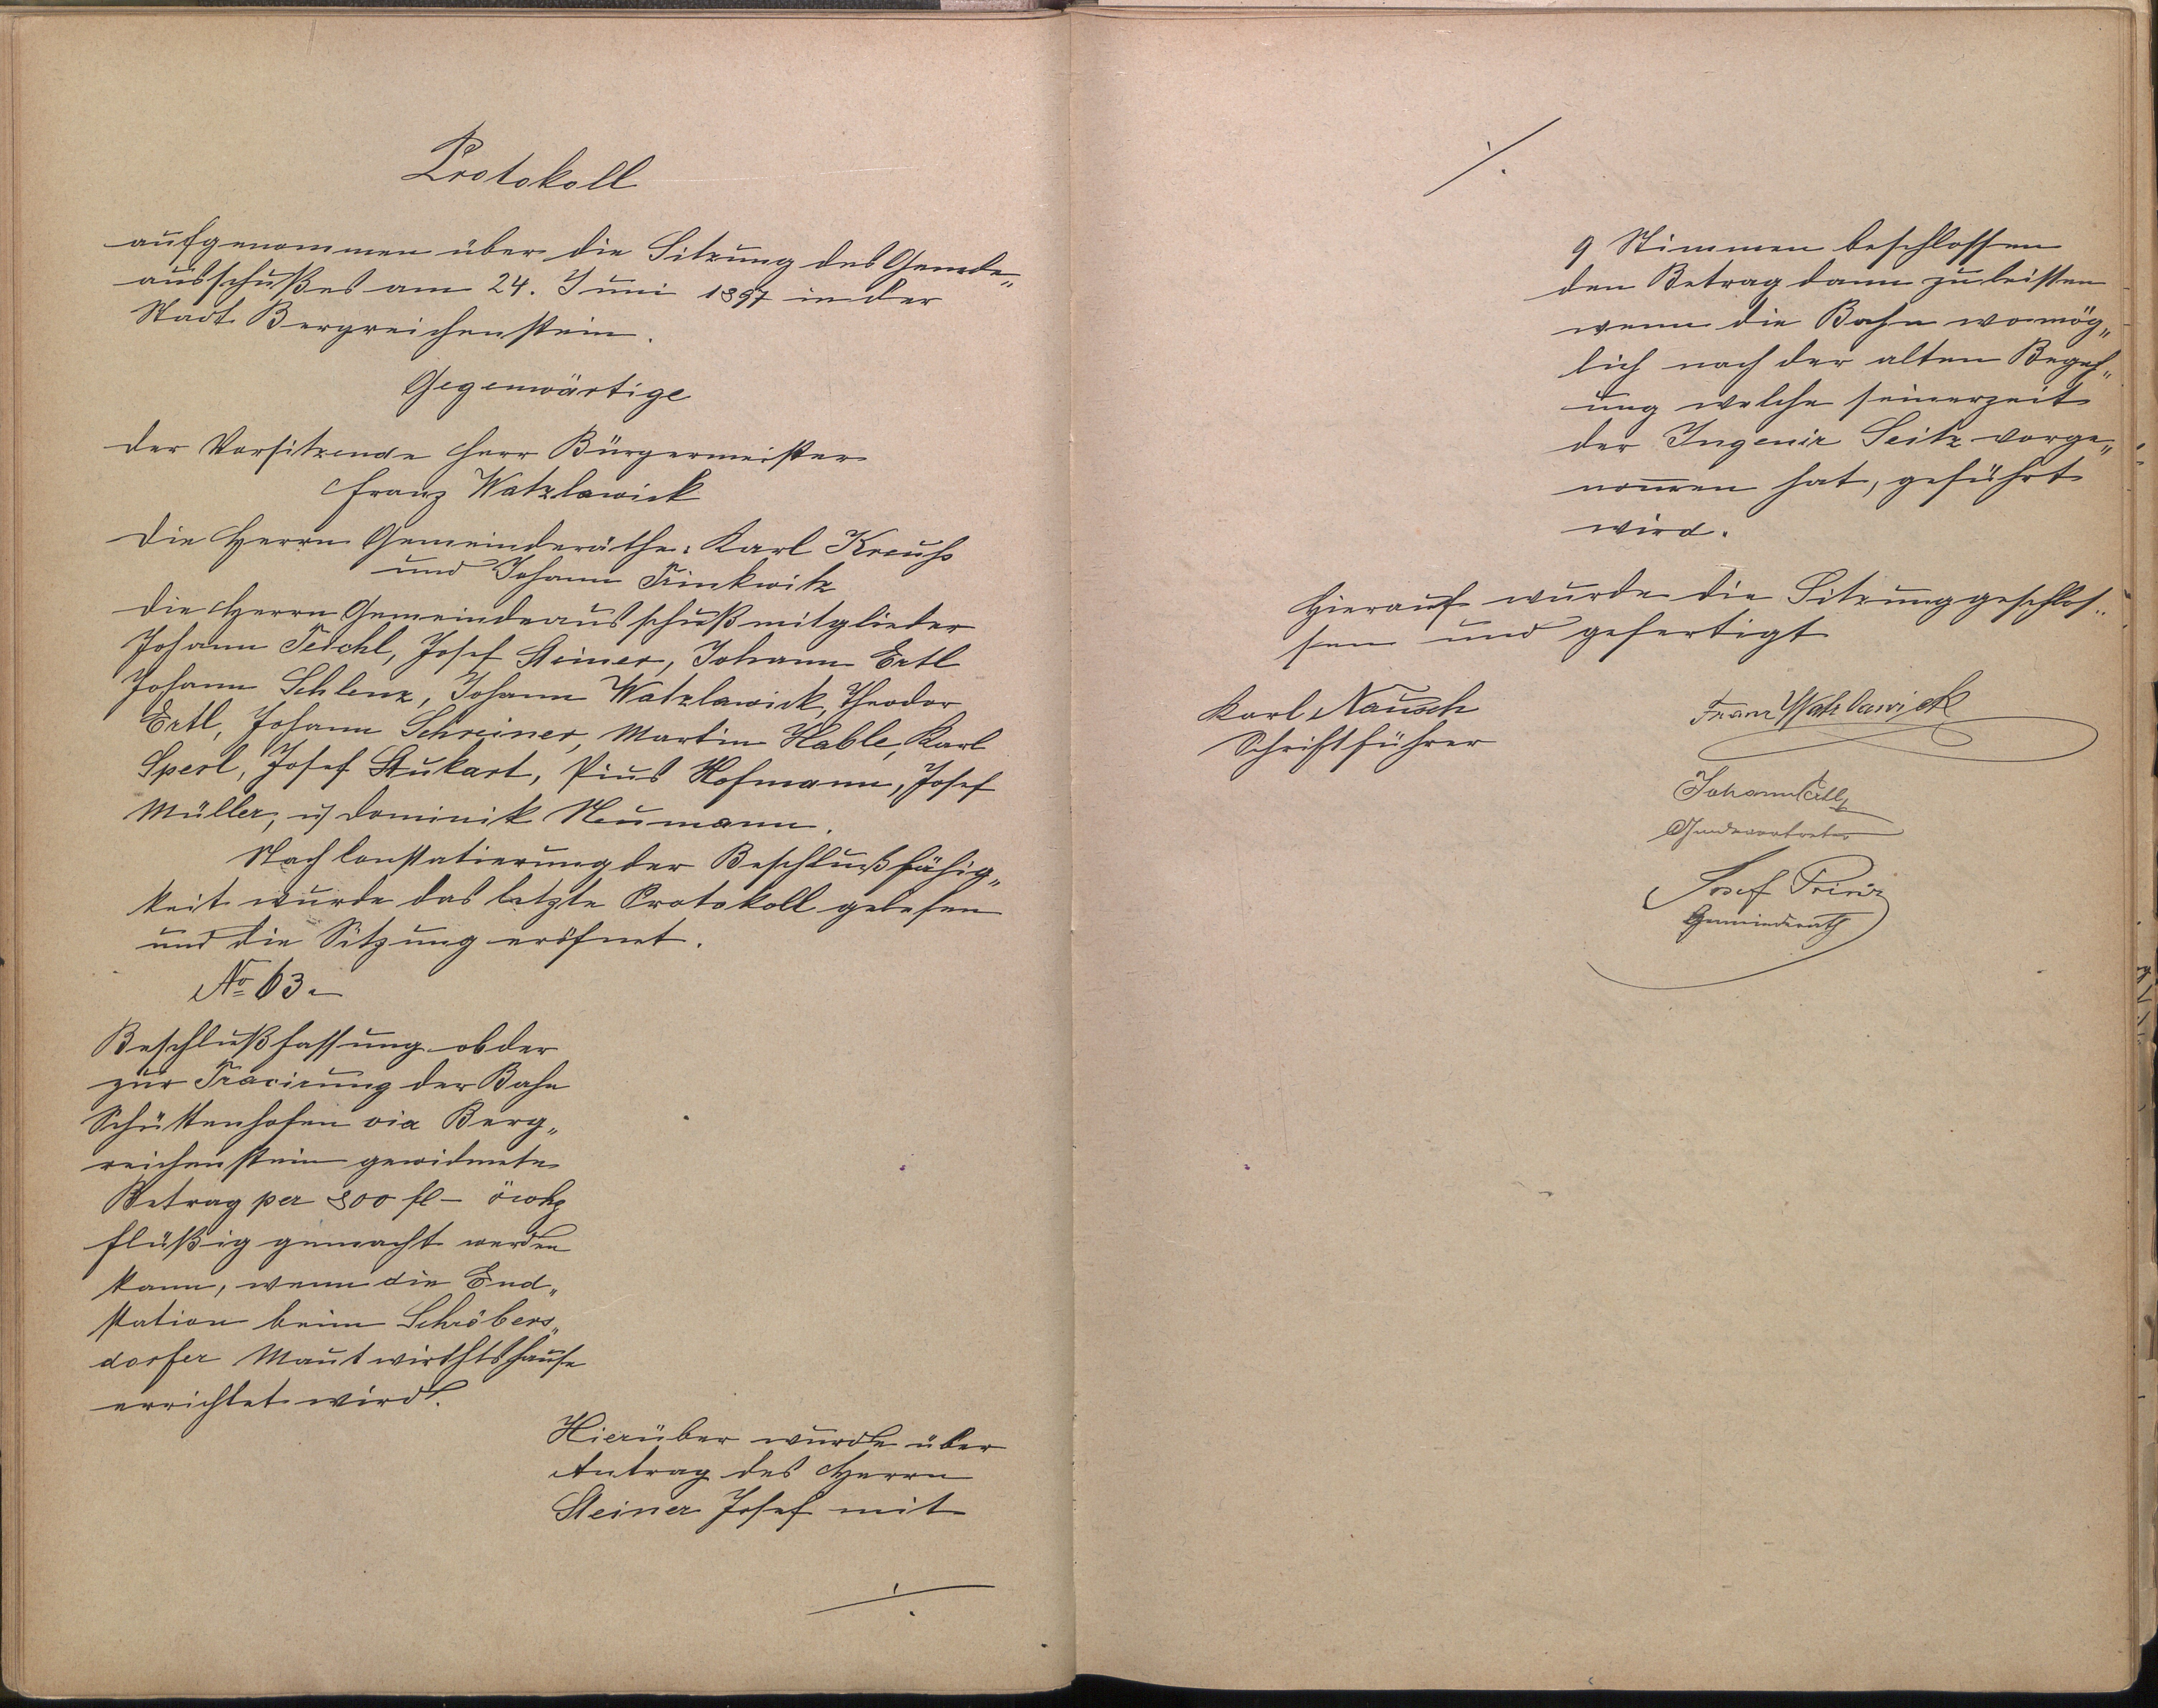 Protokoll
aufgenommen über die Sitzung des Gemde„
ausschußes am 24. Juni 1897 in der
Stadt Bergreichenstein.
Gegenwärtige
der Vorsitzende Herr Bürgermeister
Franz Watzlawick
Die Herrn Gemeinderäthe: Karl Kreuhs
und Johann Trinkwitz
die Herrn Gemeindeausschußmitglieder
Johann Teichl, Josef Steiner, Johann Ertl
Johann Schlenz, Johann Watzlawick, Theodor
Ertl, Johann Schreiner, Martin Hable, Karl
Sperl, Josef Stukart, Pius Hofmann, Josef
Müller, u Dominik Neumann.
Nach Constatierung der Beschlußfähig„
keit wurde das letzte Protokoll gelesen
und die Sitzung eröfnet.
No 63.
Beschlußfassung ob der
zur Tracirung der Bahn
Schüttenhofen via Berg„
reichenstein gewidmete
Betrag per 800 fl –
flüßig gemacht werden
kann, wenn die End„
station beim Schröbers„
dorfer Mautwirthshause
errichtet wird.
Hierüber wurde über
Antrag des Herrn
Steiner Josef mit
./.
./.
9 Stimmen beschlossen
den Betrag dann zu leisten
wenn die Bahn womög„
lich nach der alten Begeh„
ung welche seinerzeit
der Ingenir Seitz vorge„
nom̅en hat, geführt
wird.
Hierauf wurde die Sitzung geschlos„
sen und gefertigt
Karl Nausch
Schriftführer
Franz Watzlawick
Johann Ertl
Josef Prinz
Gemeinderath